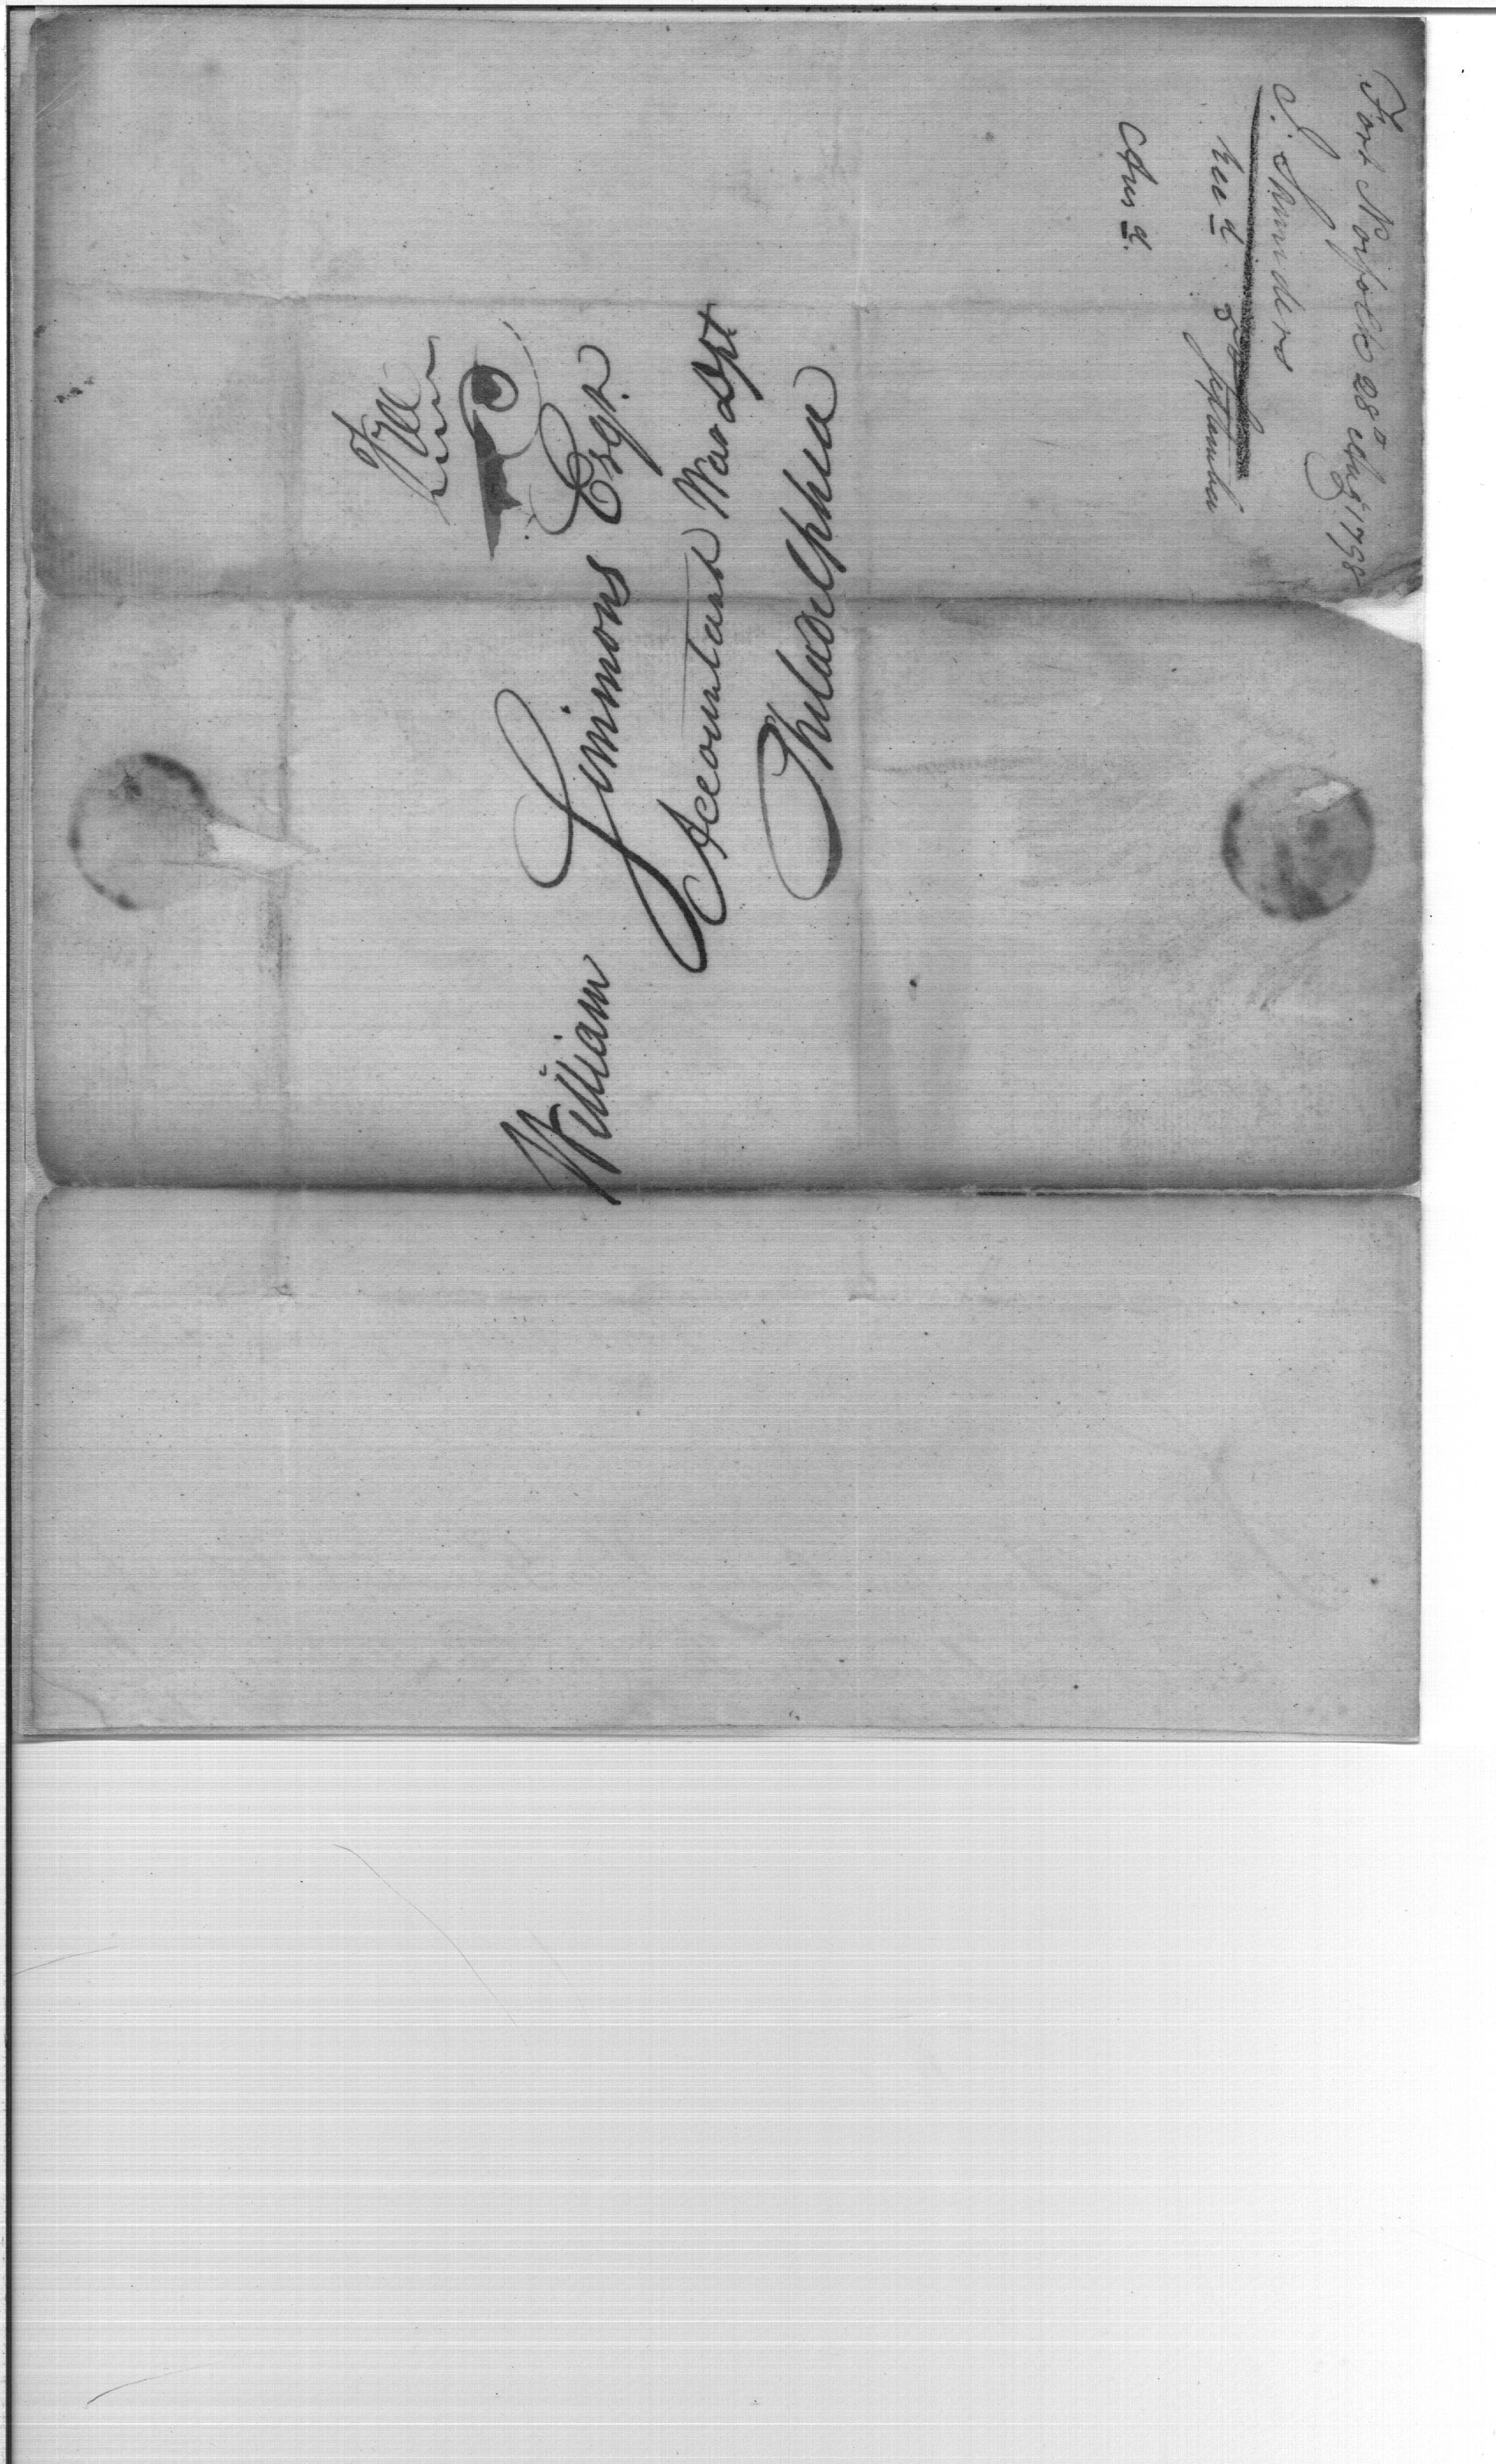 Fort Norfolk 28th Aug. 1798
S. Saunders
Rec.d 5 September
Ans.d
Free
William Simmons Esqr.
Accountant War Dpt.
Philadelphia